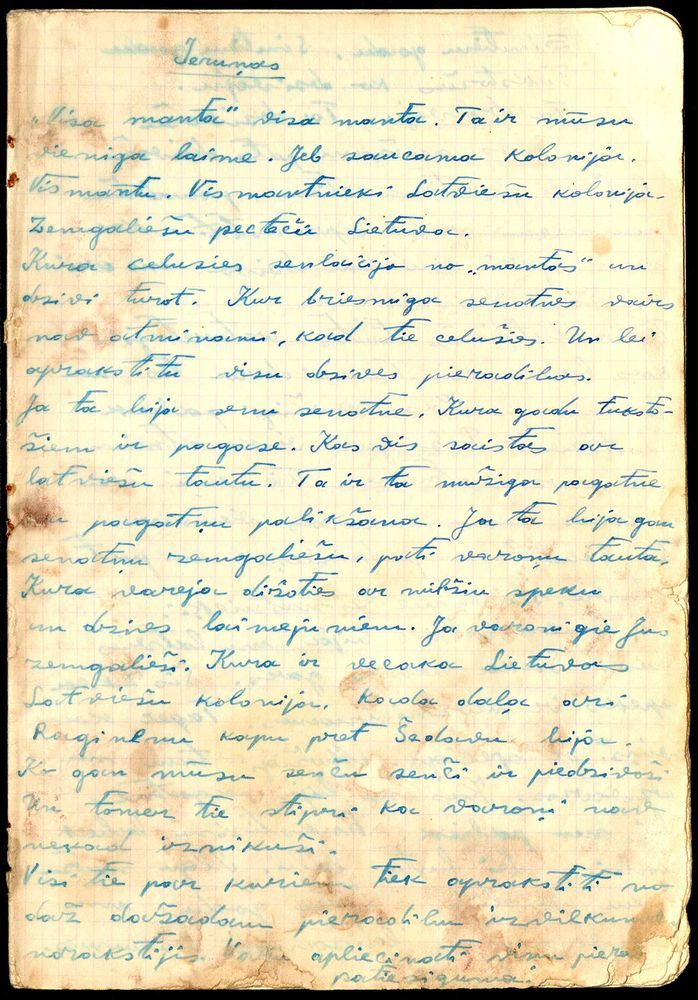 Ierunas
„Visa manta" visa manta. Ta ir mūsu
vieniga laime. Jeb saucama kolonija.
Vismantu. Vismantnieki Latviešu kolonija.
Zemgaliešu pectečū Lietuva.
Kura celusies senlaicīja no „mantas" un
dzivi turot. Kur briesmiga senatnes vairs
nav atminami, kad tie celušies. Un lai
aprakstitu visu dzives pieradibas.
Ja ta bija senu senatne, Kura gadu tuksto-
šiem ir pagase. Kas vis saistas ar
latviešu tautu. Ta ir ta mužiga pagatne
un pagatņu palikšana. Ja ta bija gan
senatnu zemgaliešu, pati varoņu tauta,
Kura vareja dižoties ar milžiu speku
un dzives laimejumiem. Ja varonigie Jus
zemgalieši. Kura ir vecaka Lietuvas
Latviešu kolonija, kada daļa ari
Raginenu kapu pret Šadavu bija.
Ko gan mūsu senču senči ir piedzivoši
Un tomer tie stipri ka varoņi nav
nekad iznikuši.
Visi tie par kuriem tiek aprakstiti no
daž dažadam pieradibu izvilkumu
norakstijis. apliecinati visu
patiesiguma.